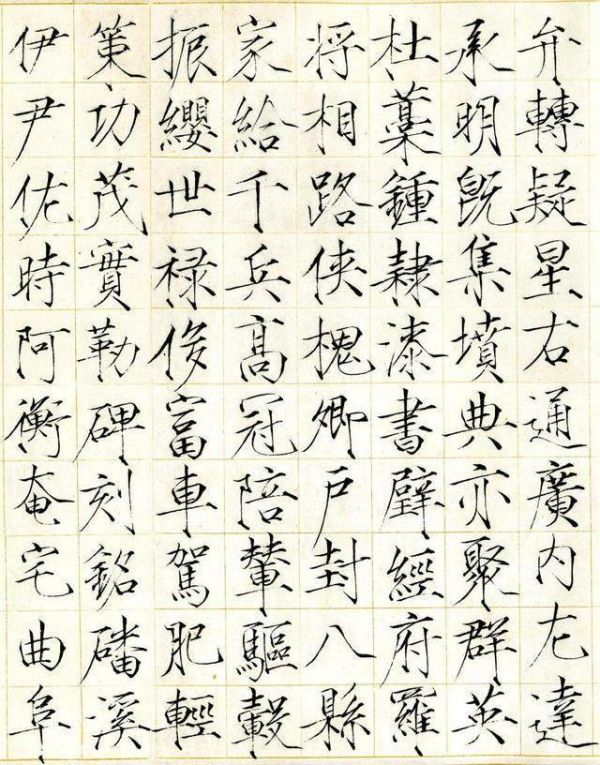 弁轉疑星右通廣內左達
承明既集墳典亦聚群英
杜藁鍾隸漆書壁經府羅
将相路俠槐卿戶封八縣
家給千兵高冠陪輦驅轂
振纓世禄侈富車駕肥輕
策功茂實勒碑刻銘磻溪
伊尹佐時阿衡奄宅曲阜